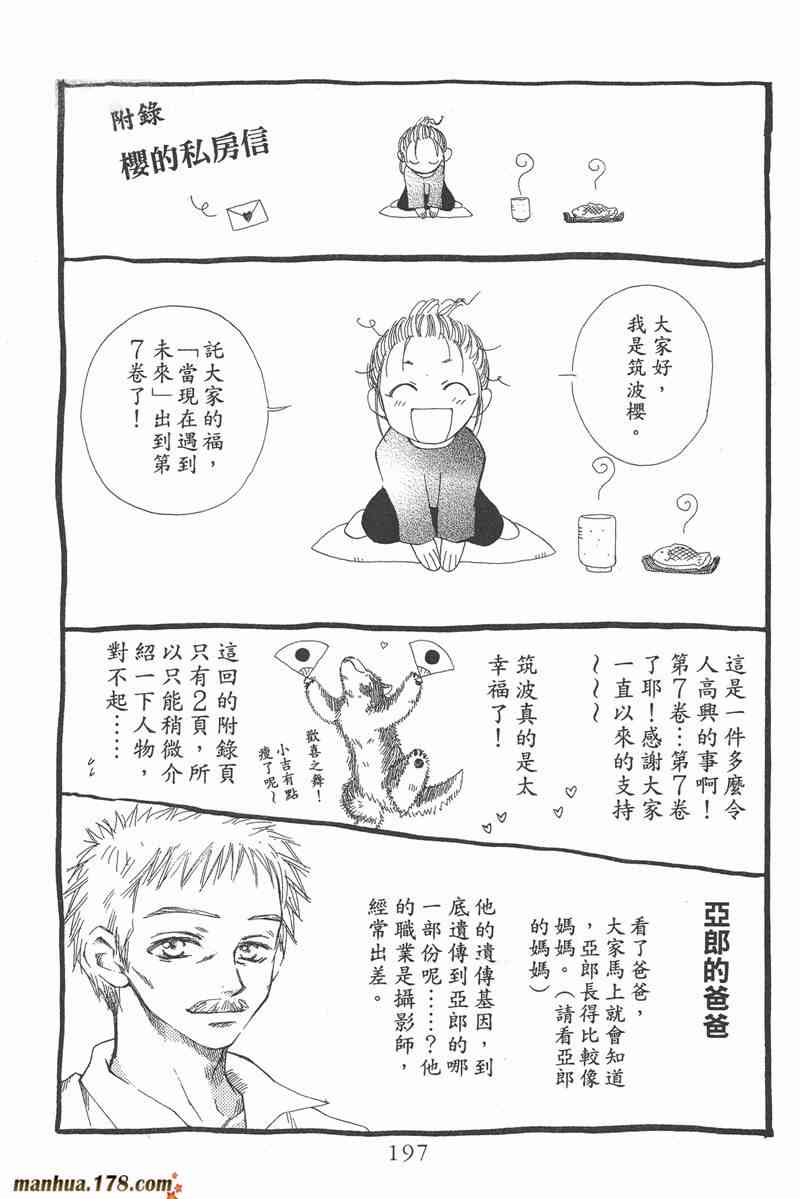 附錄
櫻的私房信
大家好，
我是筑波櫻。
託大家的福，
「當現在遇到
未來」出到第
7卷了！
這是一件多麼令
人高興的事啊！
第7卷…第7卷
了耶！感謝大家
一直以來的支持
～～～
筑波真的是太
幸福了！
歡喜之舞！
小吉有點
瘦了呢～
這回的附錄頁
只有2頁，所
以只能稍微介
紹一下人物，
對不起……
亞郎的爸爸
看了爸爸，
大家馬上就會知道
，亞郎長得比較像
媽媽。（請看亞郎
的媽媽）
他的遺傳基因，到
底遺傳到亞郎的哪
一部份呢……？他
的職業是攝影師，
經常出差。
197
manhua.178.com